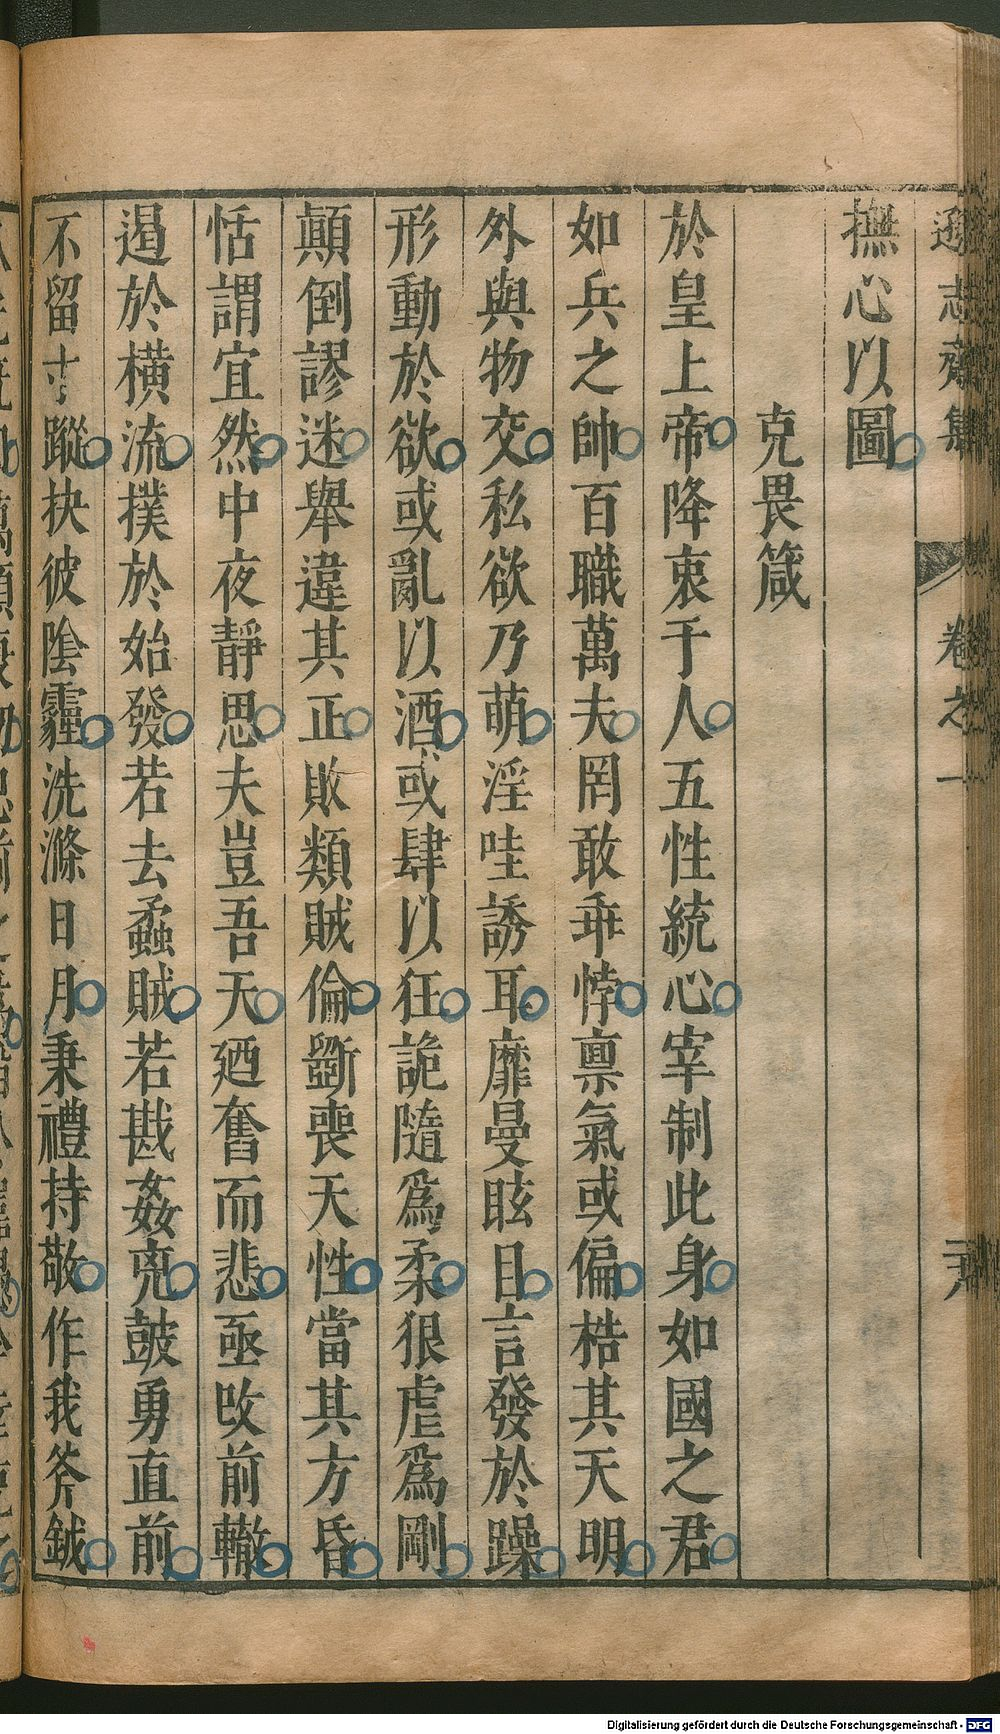 遜志齋集 卷之一
撫心以圖
克畏箴
於皇上帝降衷于人五性統心宰制此身如國之君
如兵之帥百職萬夫罔敢乖悖禀氣或偏梏其天明
外與物交私欲乃萌淫哇誘耳靡曼眩目言發於躁
形動於欲或亂以酒或肆以狂詭隨爲柔狠虐爲剛
顛倒謬迷舉違其正敗類賊倫斵喪天性當其方昏
恬謂宜然中夜靜思夫豈吾天廼奮而悲亟改前轍
遏於橫流撲於始發若去蟊賊若戡姦兇鼓勇直前
不留寸蹤抉彼陰霾洗滌日月秉禮持敬作我斧鉞
Digitalisierung gefördert durch die Deutsche Forschungsgemeinschaft - DFG